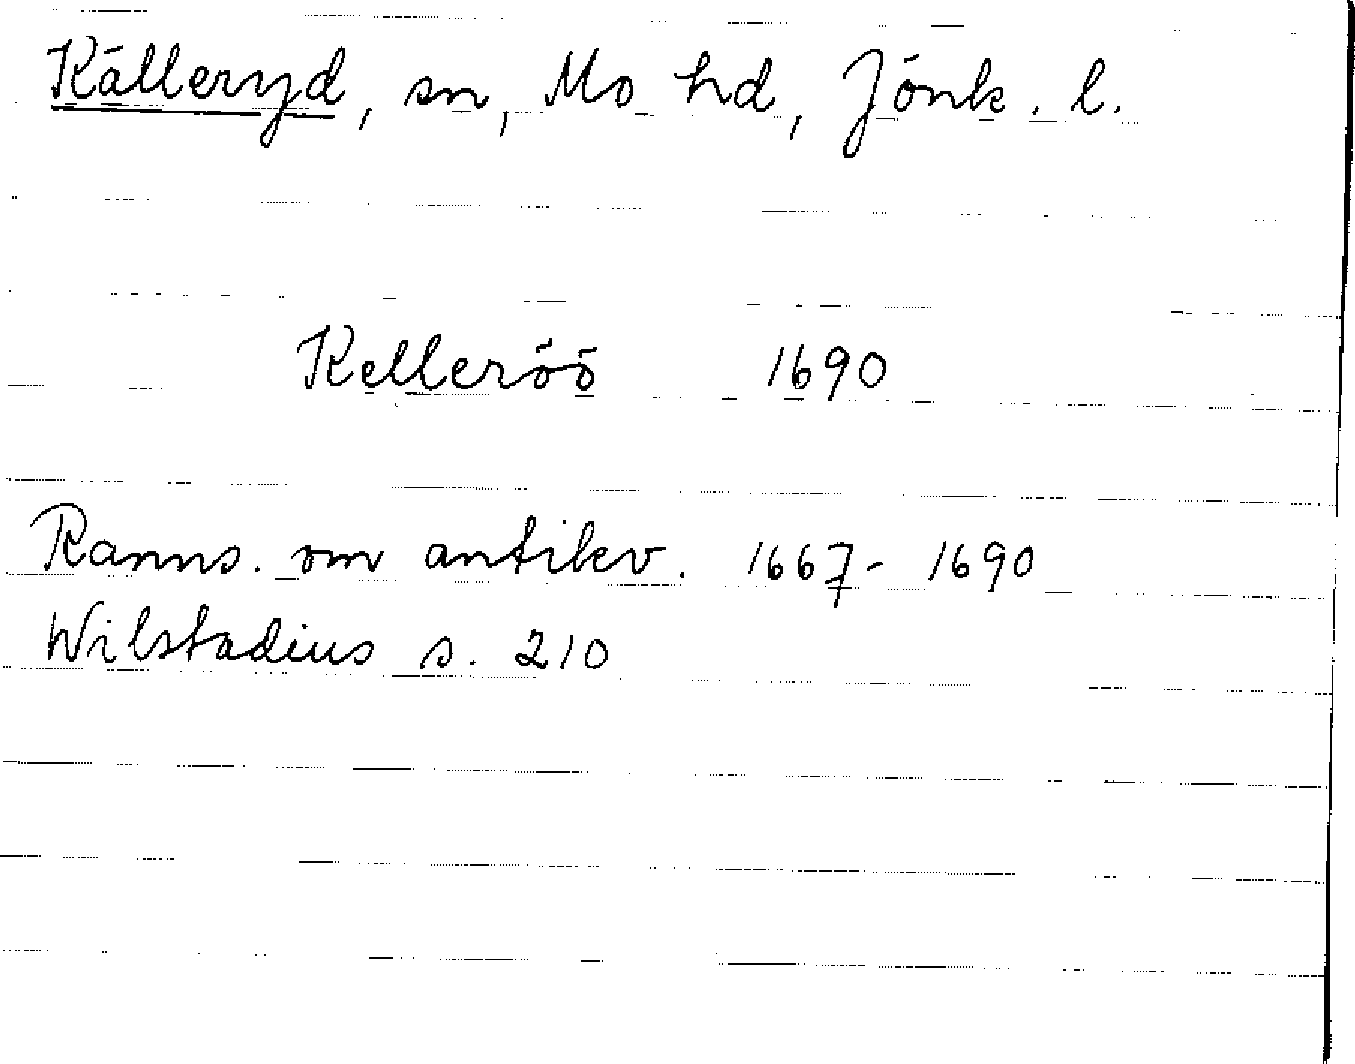 Källeryd, sn, Mo hd, Jönk. l.
Kelleröö 1690
Ranns. om antikv. 1667- 1690
Wilstadius s. 210